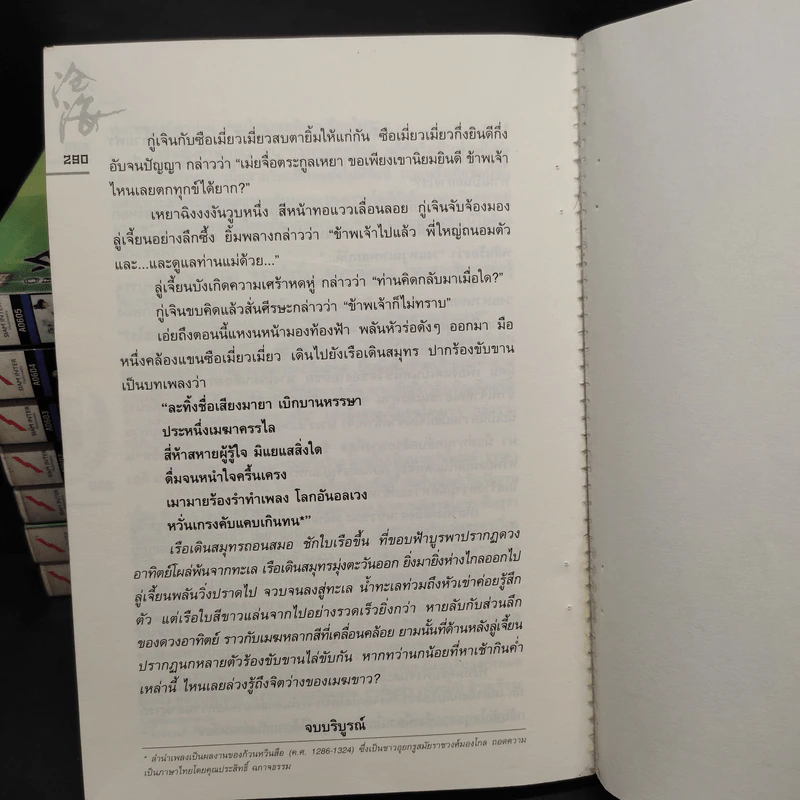 滄海
290
กู่เจินกับซือเมี่ยวเมี่ยวสบตายิ้มให้แก่กัน ซือเมี่ยวเมี่ยวกึ่งยินดีกึ่ง
อับจนปัญญา กล่าวว่า “เม่ยจื่อตระกูลเหยา ขอเพียงเขานิยมยินดี ข้าพเจ้า
ไหนเลยตกทุกข์ได้ยาก?”
เหยาฉิงงงงันวูบหนึ่ง สีหน้าทอแววเลื่อนลอย กู่เจินจับจ้องมอง
ลู่เจี้ยนอย่างลึกซึ้ง ยิ้มพลางกล่าวว่า “ข้าพเจ้าไปแล้ว พี่ใหญ่ถนอมตัว
และ...และดูแลท่านแม่ด้วย...”
ลู่เจี้ยนบังเกิดความเศร้าหดหู่ กล่าวว่า “ท่านคิดกลับมาเมื่อใด?”
กู่เจินขบคิดแล้วสั่นศีรษะกล่าวว่า “ข้าพเจ้าก็ไม่ทราบ”
เอ่ยถึงตอนนี้แหงนหน้ามองท้องฟ้า พลันหัวร่อดังๆ ออกมา มือ
หนึ่งคล้องแขนซือเมี่ยวเมี่ยว เดินไปยังเรือเดินสมุทร ปากร้องขับขาน
เป็นบทเพลงว่า
“ละทิ้งชื่อเสียงมายา เบิกบานหรรษา
ประหนึ่งเมฆาครรไล
สี่ห้าสหายผู้รู้ใจ มิแยแสสิ่งใด
ดื่มจนหนำใจครื้นเครง
เมามายร้องรำทำเพลง โลกอันอลเวง
หวั่นเกรงคับแคบเกินทน*”
เรือเดินสมุทรถอนสมอ ชักใบเรือขึ้น ที่ขอบฟ้าบูรพาปรากฏดวง
อาทิตย์โผล่พ้นจากทะเล เรือเดินสมุทรมุ่งตะวันออก ยิ่งมายิ่งห่างไกลออกไป
ลู่เจี้ยนพลันวิ่งปราดไป จวบจนลงสู่ทะเล น้ำทะเลท่วมถึงหัวเข่าค่อยรู้สึก
ตัว แต่เรือใบสีขาวแล่นจากไปอย่างรวดเร็วยิ่งกว่า หายลับกับส่วนลึก
ของดวงอาทิตย์ ราวกับเมฆหลากสีที่เคลื่อนคล้อย ยามนั้นที่ด้านหลังลู่เจี้ยน
ปรากฏนกหลายตัวร้องขับขานไล่ขับกัน หากทว่านกน้อยที่หาเช้ากินค่ำ
เหล่านี้ ไหนเลยล่วงรู้ถึงจิตว่างของเมฆขาว?
จบบริบูรณ์
* ลำนำเพลงเป็นผลงานของก้วนหวินสือ (ค.ศ. 1286-1324) ซึ่งเป็นชาวอุยกรูสมัยราชวงศ์มองโกล ถอดความ
เป็นภาษาไทยโดยคุณประสิทธิ์ ฉกาจธรรม
SIAM INTER
A0605
SIAM INTER
A0604
SIAM INTER
A0603